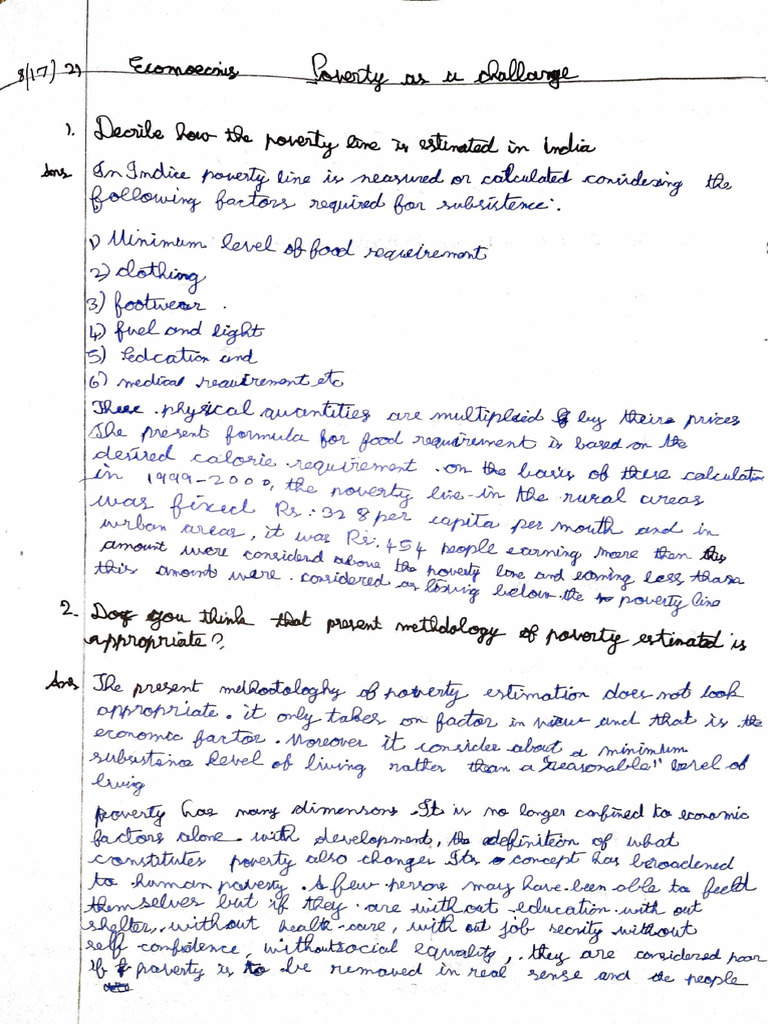 8/17/21 Ecomoecnis Poverty as a challange
1. Decrile how the poverty line is estimated in India
Ans In Indice poverty line is neasured or calculated considering the
following factors required for subsistence:.
1) Minimum level of food requirement
2) clothing
3) footwear .
4) fuel and light
5) Edcation and
6) medical requirement etc
These physical quantities are multiplied by their prices
The present formula for food requirement is based on the
desired calorie requirement . on the basis of these calculation
in 1999-2000, the poverty live in the rural areas
was fixed Rs: 328 per capita per mouth and in
urban areas, it was Rs. 454 people earning more then this
amount were considerd above the poverty lone and earning less thase
this amount were . considered as living below the poverty line
2. Do you think that present methdology of poverty estimated is
appropriate?
Ans The present methodologhy of poverty estimation does not look
appropriate. it only takes on factor in view and that is the
economic factor. Moreover it consider about a minimum
subsistence level of living rather than a "reasonable" level of
living
poverty has many dimensons. It is no longer confined to economic
factors alone. with development, the definition of what
constitutes poverty also changes Its concept has beroadened
to human poverty. A few persons may have been able to feeld
themselves but if they are without education with out
shelter, without health-care, with out job secrity without
self confidence, without social equality, they are considered poor
if poverty is to be removed in real sense and the people